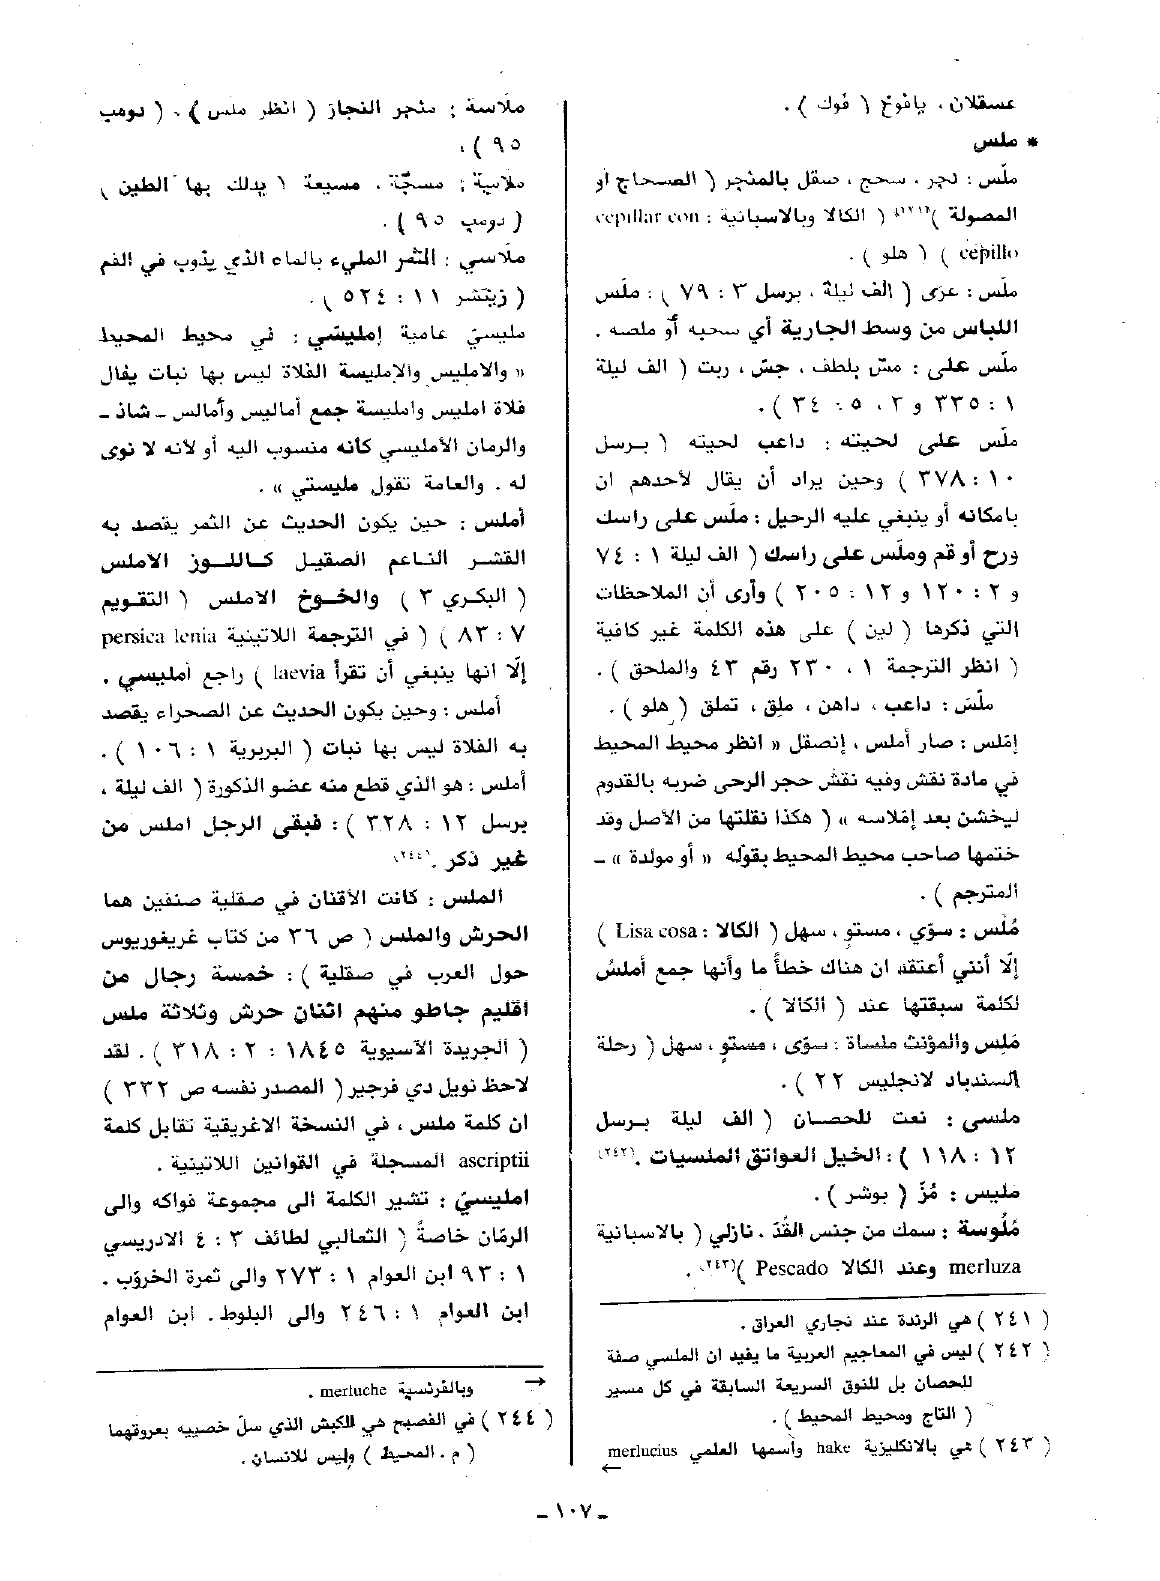 عسقلان ، يافوخ ( فوك ) .
* ملس
ملّس : نجر ، سحج ، صقل بالمنجر ( الصحاح أو
المصولة )(٢٤١) ( الكالا وبالاسبانية : cepillar con
cepillo ) ( هلو ) .
ملّس : عرّى ( الف ليلة ، برسل ٣ : ٧٩ ) : ملّس
اللباس من وسط الجارية أي سحبه أو ملصه .
ملّس على : مسّ بلطف ، جسّ ، ربت ( الف ليلة
١ : ٣٣٥ و ٢ ، ٥ : ٣٤ ) .
ملّس على لحيته : داعب لحيته ( برسل
١٠ : ٣٧٨ ) وحين يراد أن يقال لأحدهم ان
بامكانه أو ينبغي عليه الرحيل : ملّس على راسك
ورح أو قم وملّس على راسك ( الف ليلة ١ : ٧٤
و ٢ : ١٢٠ و ١٢ : ٢٠٥ ) وأرى أن الملاحظات
التي ذكرها ( لين ) على هذه الكلمة غير كافية
( انظر الترجمة ١ ، ٢٣٠ رقم ٤٣ والملحق ) .
ملّس : داعب ، داهن ، ملق ، تملق ( هلو ) .
إمّلس : صار أملس ، إنصقل « انظر محيط المحيط
في مادة نقش وفيه نقش حجر الرحى ضربه بالقدوم
ليخشن بعد إمّلاسه » ( هكذا نقلتها من الأصل وقد
ختمها صاحب محيط المحيط بقوله « أو مولدة » -
المترجم ) .
مُلْس : سوّي ، مستوٍ ، سهل ( الكالا : Lisa cosa )
إلّا أنني أعتقد ان هناك خطأ ما وأنها جمع أملسْ
لكلمة سبقتها عند ( الكالا ) .
مَلِس والمؤنث ملساة : سوّى ، مستوٍ ، سهل ( رحلة
السندباد لانجليس ٢٢ ) .
ملسي : نعت للحصان ( الف ليلة برسل
١٢ : ١١٨ ) : الخيل العواتق الملسيات .(٢٤٢)
مليس : مُزّ ( بوشر ) .
مَلُوسة : سمك من جنس القُدّ ، نازلي ( بالاسبانية
merluza وعند الكالا Pescado )(٢٤٣) .
( ٢٤١ ) هي الرندة عند نجاري العراق .
( ٢٤٢ ) ليس في المعاجيم العربية ما يفيد ان الملسي صفة
للحصان بل للنوق السريعة السابقة في كل مسير
( التاج ومحيط المحيط ) .
( ٢٤٣ ) هي بالانكليزية hake وأسمها العلمي merlucius
←
ملّاسة : منجر النجار ( انظر ملس ) . ( دومب
٩٥ ) .
ملّاسة : مسجّة ، مسيعة ( يدلك بها الطين )
( دومب ٩٥ ) .
ملّاسي : الثمر المليء بالماء الذي يذوب في الفم
( زيتشر ١١ : ٥٢٤ ) .
مليسيّ عامية إمليسّي : في محيط المحيط
« والامليس والامليسة الفلاة ليس بها نبات يقال
فلاة امليس وامليسة جمع أماليس وأمالس - شاذ -
والرمان الأمليسي كانه منسوب اليه أو لأنه لا نوى
له . والعامة تقول مليستي » .
أملس : حين يكون الحديث عن الثمر يقصد به
القشر الناعم الصقيل كاللوز الأملس
( البكري ٣ ) والخوخ الاملس ( التقويم
٧ : ٨٣ ) ( في الترجمة اللاتينية persica lenia
إلّا انها ينبغي أن تقرأ laevia ) راجع أمليسي .
أملس : وحين يكون الحديث عن الصحراء يقصد
به الفلاة ليس بها نبات ( البربرية ١ : ١٠٦ ) .
أملس : هو الذي قطع منه عضو الذكورة ( الف ليلة ،
برسل ١٢ : ٣٢٨ ) : فبقى الرجل املس من
غير ذكر .(٢٤٤)
الملس : كانت الأقنان في صقلية صنفين هما
الحرش والملس ( ص ٣٦ من كتاب غريغوريوس
حول العرب في صقلية ) : خمسة رجال من
اقليم جاطو منهم اثنان حرش وثلاثة ملس
( الجريدة الآسيوية ١٨٤٥ : ٢ : ٣١٨ ) . لقد
لاحظ نويل دي فرجير ( المصدر نفسه ص ٣٣٢ )
ان كلمة ملس ، في النسخة الاغريقية تقابل كلمة
ascriptii المسجلة في القوانين اللاتينية .
امليسيّ : تشير الكلمة الى مجموعة فواكه والى
الرمّان خاصةً ( الثعالبي لطائف ٣ : ٤ الادريسي
١ : ٩٣ ابن العوام ١ : ٢٧٣ والى ثمرة الخروّب .
ابن العوام ١ : ٢٤٦ والى البلوط . ابن العوام
→ وبالفرنسية merluche .
( ٢٤٤ ) في الفصيح هي للكبش الذي سلّ خصييه بعروقهما
( م . المحيط ) وليس للانسان .
- ١٠٧ -